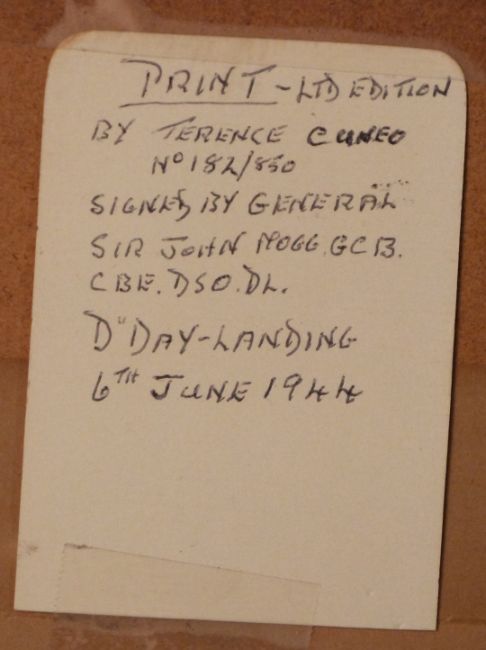 PRINT - LTD EDITION
BY TERENCE CUNEO
Nº 182/850
SIGNED BY GENERAL
SIR JOHN MOGG. GCB.
CBE. DSO. DL.
D" DAY-LANDING
6TH JUNE 1944